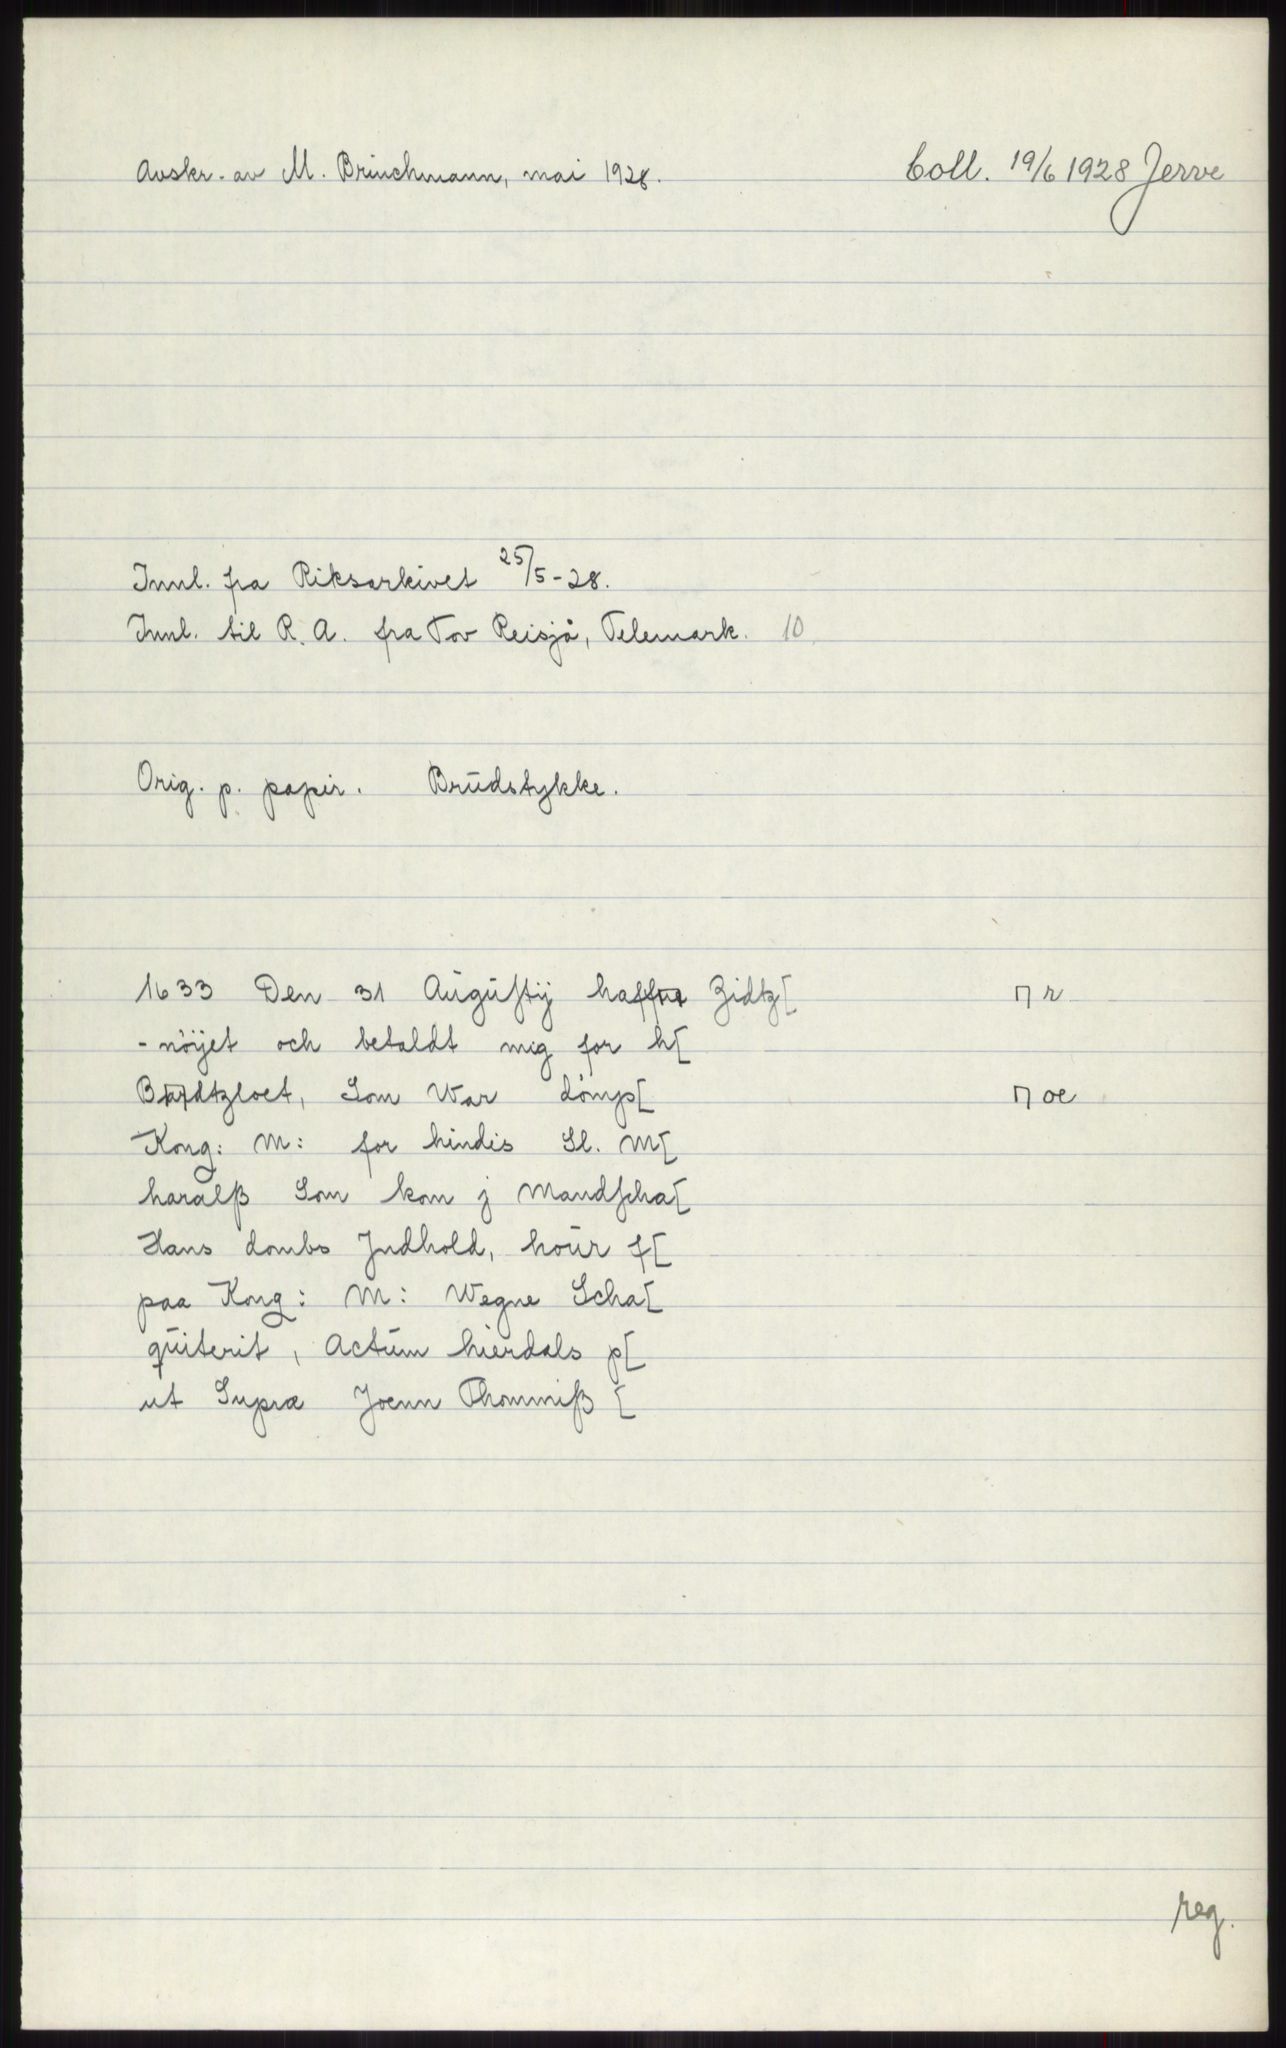 Avskr. av M. Brinchmann, mai 1928. Coll. 19/6 1928 Jerve
Innl. fra Riksarkivet 25/5-28.
Innl. til R. A. fra Tov Reisjå, Telemark. 10
Orig. p. papir. Brudstykke.
1633 Den 31 Augustij Zidtz[ ⊓ r
-nöyet och betaldt mig for h[
Som War dömp[ ⊓ oe
Kong: M: for hindis Sl. M[
haralß Som kom j Mandscha[
Hans dombs Jndhold, hour f[
paa Kong: M: Wegne Scha[
quiterit, Actum hierdals p[
ut Supræ Joenn Thommiß [
reg.